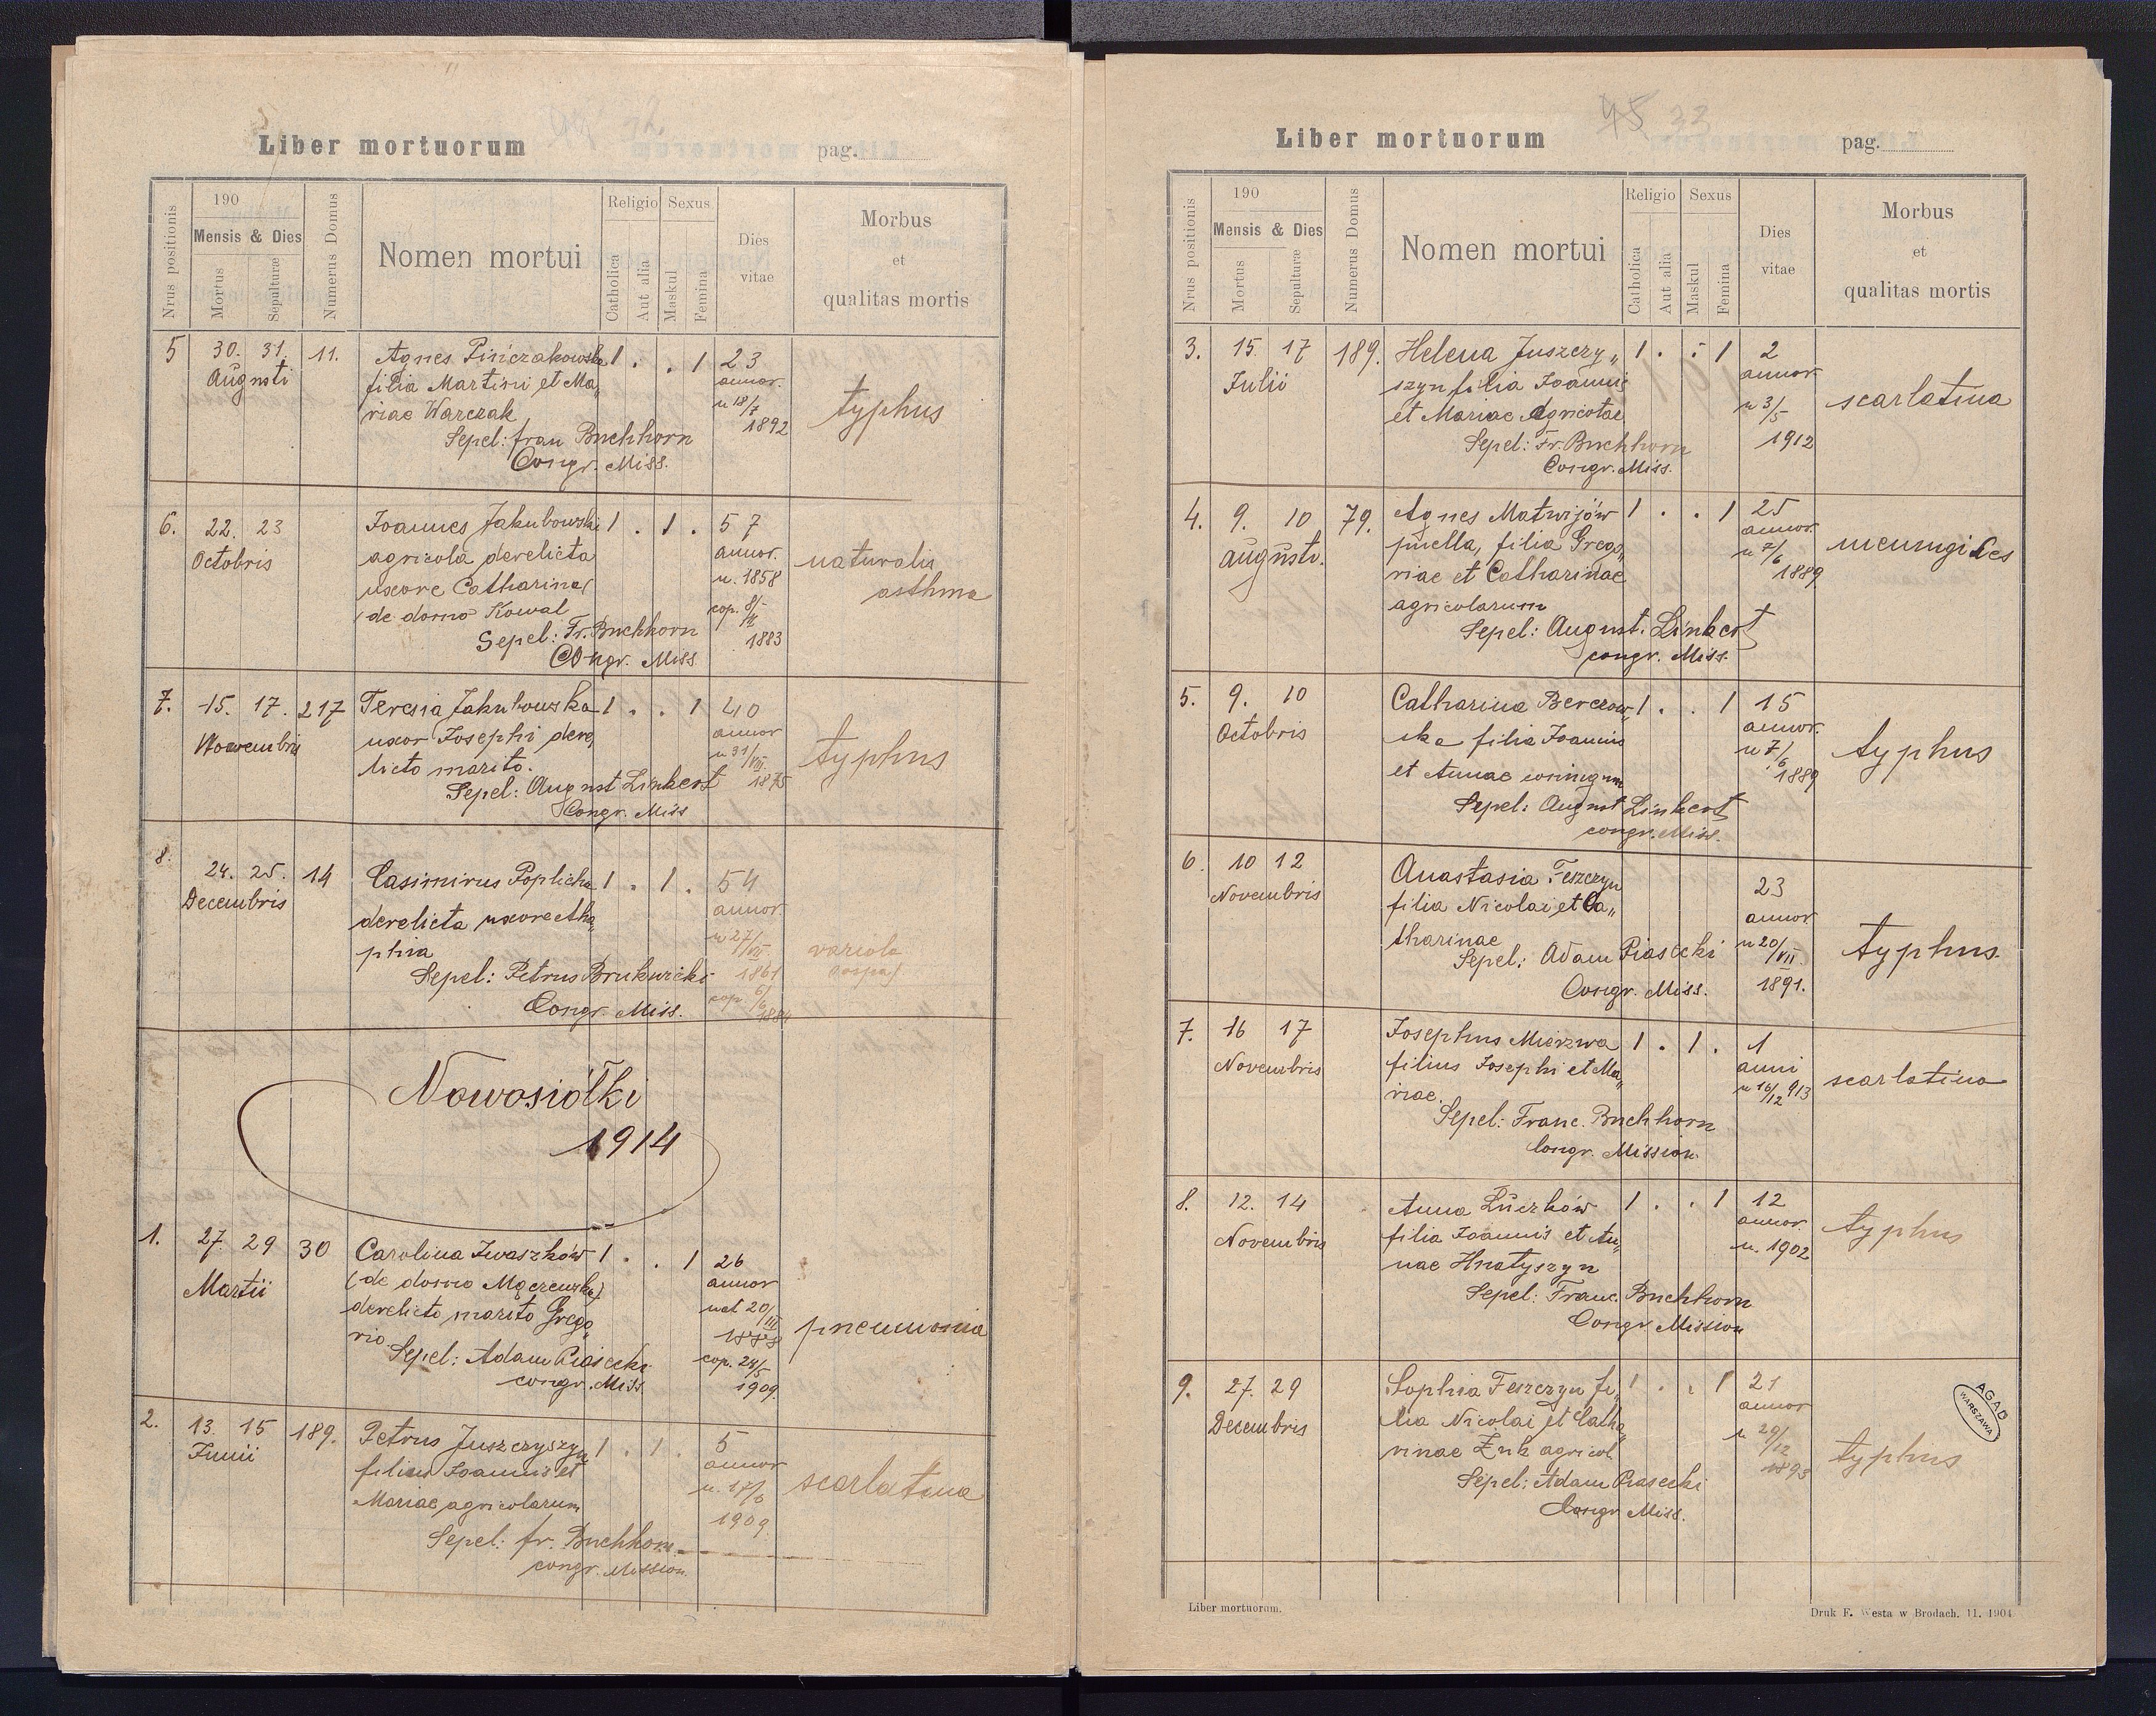 Liber mortuorum
pag.
Nrus positionis
190
Mensis & Dies
Mortus
Sepulturæ
Numerus Domus
Nomen mortui
Religio
Catholica
Aut alia
Sexus
Maskul
Femina
Dies
vitae
Morbus
et
qualitas mortis
5 30. 31. 11. Agnes Pińczakowska 1 . . 1 23
Augusti filia Martini et Ma„ annor.
riae Warczak n 18/7
Sepel: fran Buchhorn 1892 typhus
Congr. Miss.
6. 22. 23 Joannes Jakubowski 1 . 1 . 57
Octobris agricola derelicta annor. naturalis
uxore Catharina n. 1858 asthma
(de domo Kowal cop. 8/
Sepel: Fr. Buchhorn 1883
Congr. Miss
7. 15. 17. 217 Teresia Jakubowska 1 . . 1 40
Novembris uxor Josephi dere„ annor
licto marito. n 31/VII typhus
Sepel: August Linkert 1875
Congr. Miss
8. 24. 25. 14 Casimirus Poplicha 1 . 1 . 54
Decembris derelicta uxore Aha„ annor
phia n 27/VII variola
Sepel: Petrus Brukwicki 1861
Congr. Miss. cop. 6/6 1884
Nowosiółki
1914
1. 27. 29 30 Carolina Iwaszków 1 . . 1 26
Martii (de domo Mączewska) annor
derelicto marito Grego„ nat 20/III
rio. 1888 pneumonia
Sepel: Adam Piasecki cop. 24/5
congr. Miss 1909.
2. 13. 15 189. Petrus Juszczyszyn 1 . 1 . 5
Junii filius Joannis et annor
Mariae agricolarum n. 17/6 scarlatina
1909.
Sepel: fr. Buchhorn
congr. Mission.
45 33
Liber mortuorum
pag.
Nrus positionis
190
Mensis & Dies
Mortus
Sepulturæ
Numerus Domus
Nomen mortui
Religio
Catholica
Aut alia
Sexus
Maskul
Femina
Dies
vitae
Morbus
et
qualitas mortis
3. 15. 17 189. Helena Juszczy„ 1 . . 1 2
Julii szyn filia Joannis annor
et Mariae Agricolae n 3/5 scarlatina
Sepel: Fr. Buchhorn 1912
Congr. Miss.
4. 9. 10 79. Agnes Matwijów 1 . . 1 25
Augusti. puella, filia Grego„ annor.
riae et Catharinae n 7/6 meningites
agricolarum 1889
Sepel: August. Linkert
congr. Miss.
5. 9. 10 Catharina Berezow„ 1 . . 1 15
Octobris ska filia Joannis annor.
et Annae n 7/6 typhus
Sepel: August Linkert 1889
congr. Miss.
6 10 12 Anastasia Feszczyn
Novembris filia Nicolai et Ca„ 23
tharinae annor
Sepel: Adam Piasecki n 20/VII typhus.
Congr. Miss. 1891.
7. 16 17 Josephus Mierzwa 1 . 1 . 1
Novembris filius Josephi et Ma„ anni
riae. n 16/12 913 scarlatina
Sepel: Franc. Buchhorn
Congr. Mission.
8. 12. 14 Anna Łuczków 1 . . 1 12
Novembris filia Joannis et An„ annor.
nae Hnatyszyn n. 1902 typhus
Sepel: Franc. Buchhorn
Congr Mission
9. 27. 29 Sophia Feszczyn fi„ 1 . . 1 21
Decembris lia Nicolai et Catha„ annor
rinae Żuk agricol. n 29/12
Sepel: Adam Piasecki 1893 typhus
Congr Miss.
AGAD
WARSZAWA
Liber mortuorum.
Druk F. Westa w Brodach. 11. 1904